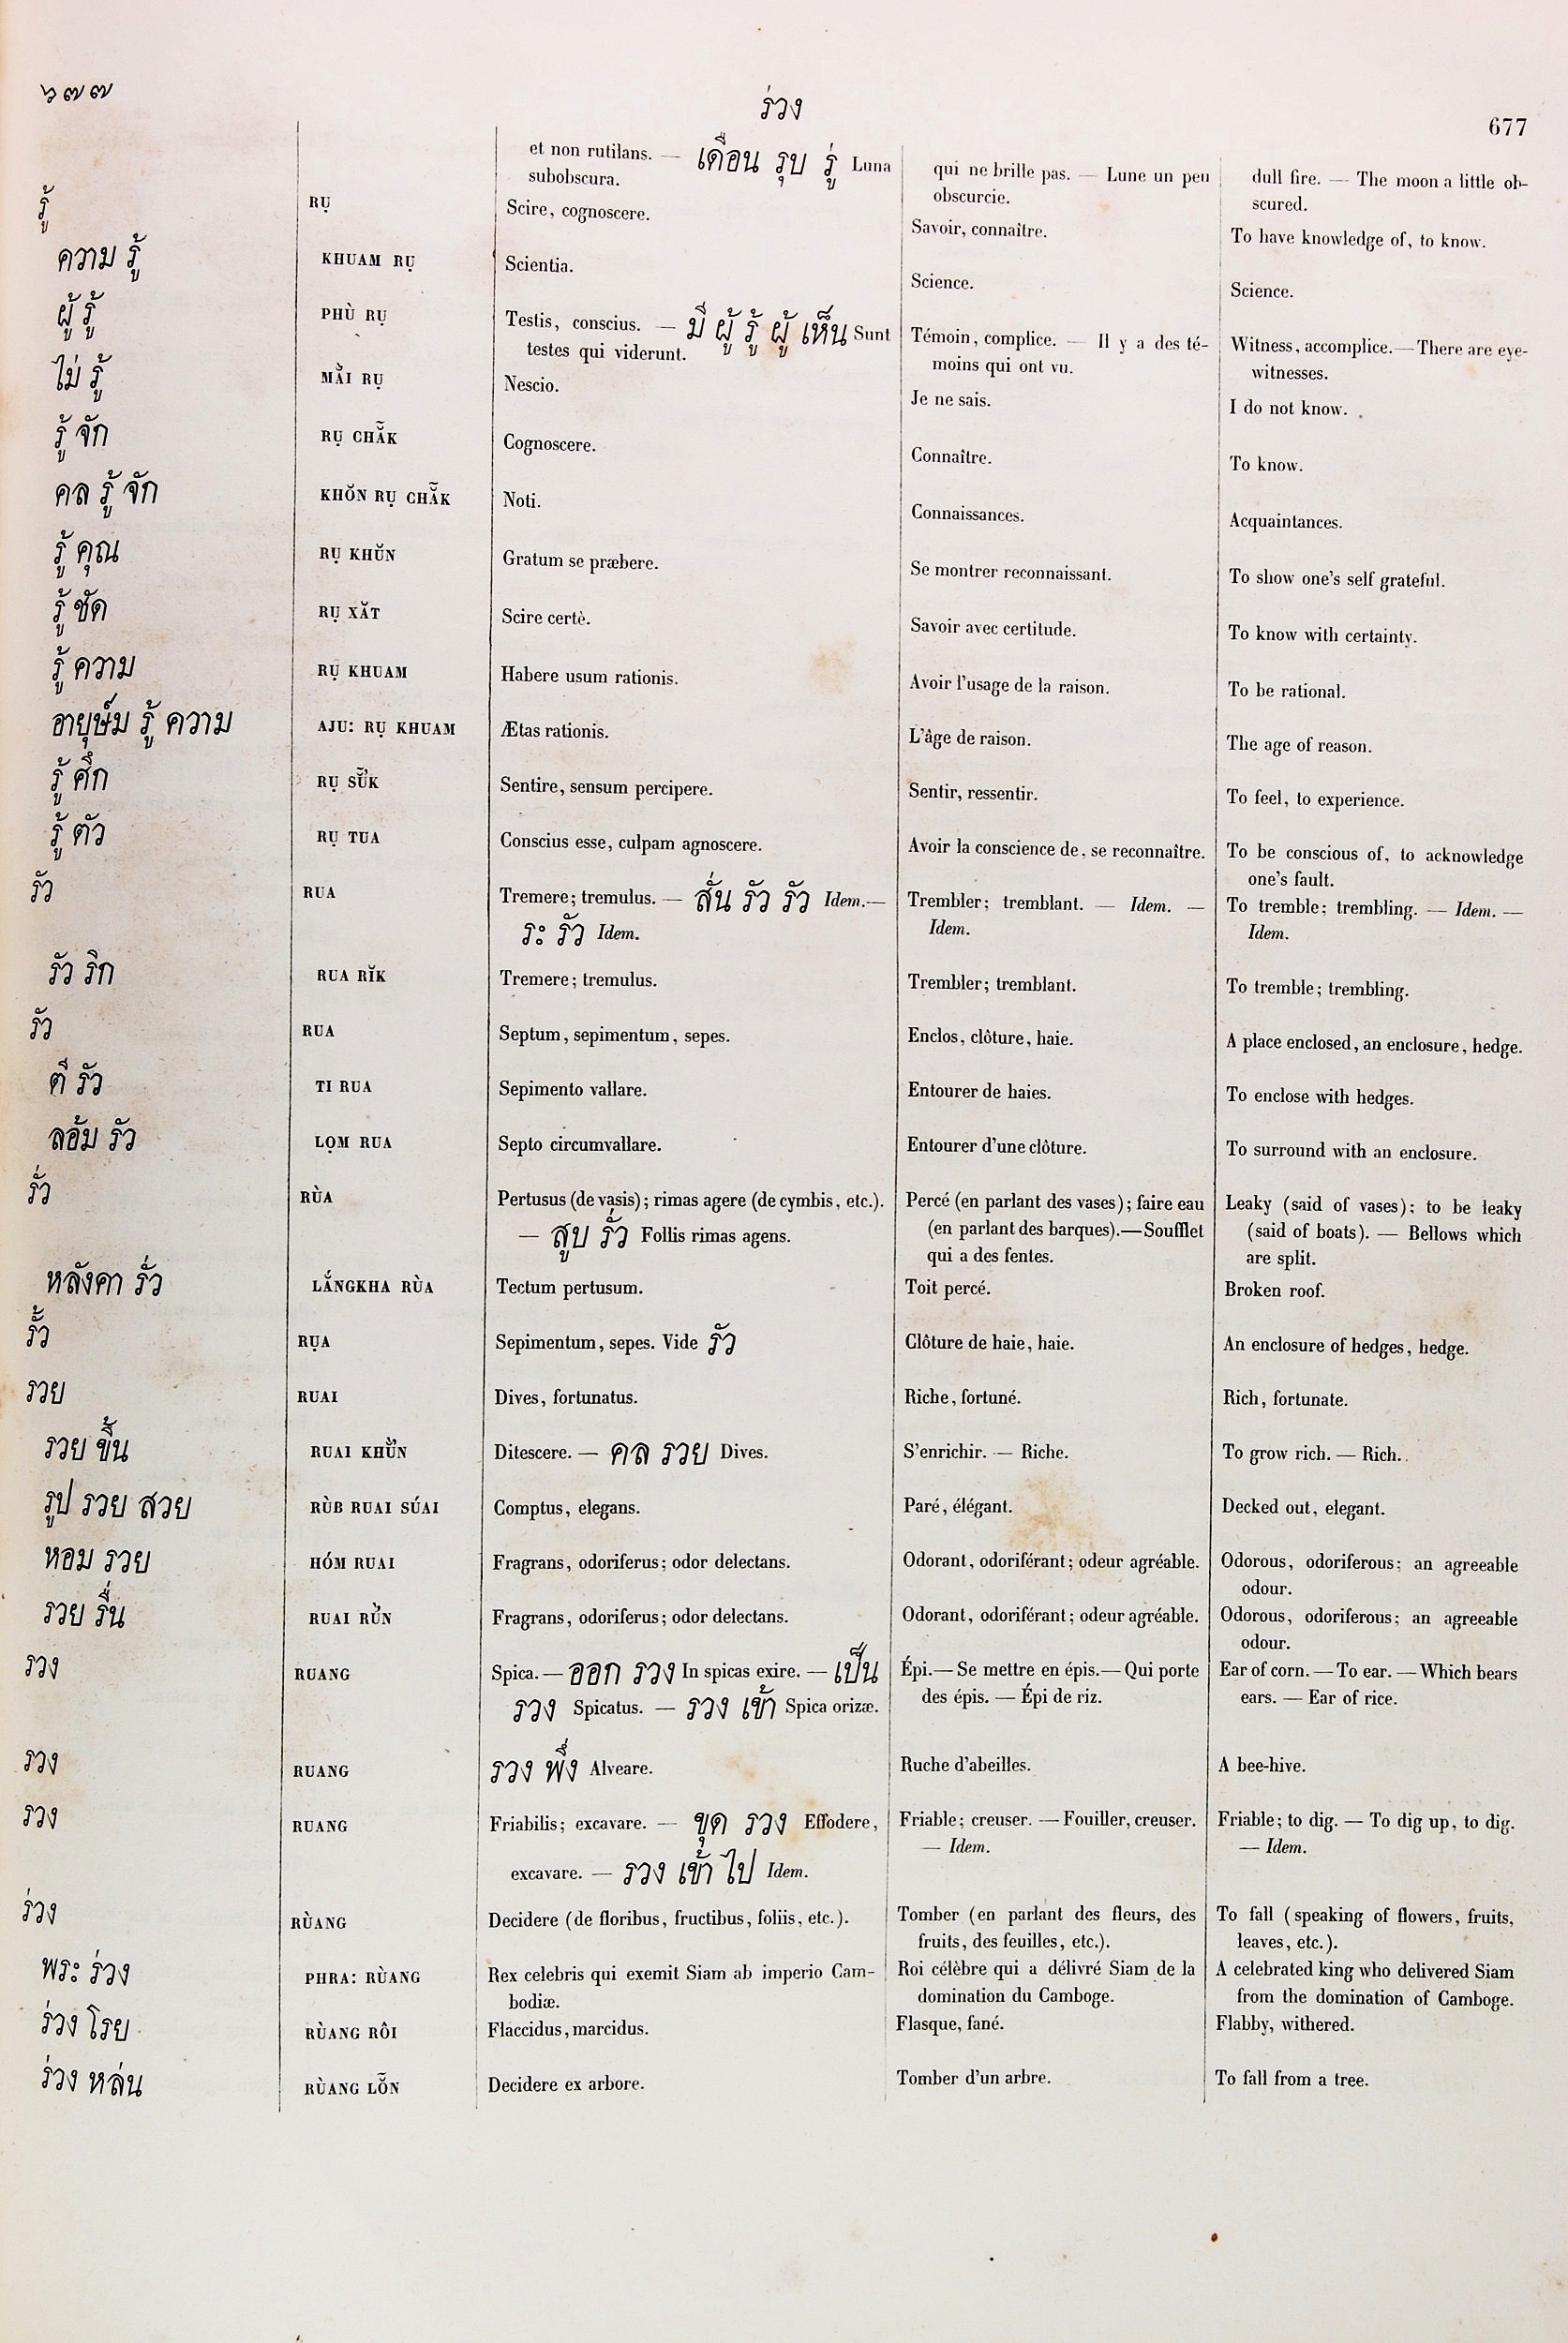 ๖๗๗ ร่วง 677
et non rutilans. — เดือน รุบ รู่ Luna qui ne brille pas. — Lune un peu dull fire. — The moon a little ob-
subobscura. obscurcie. scured.
รู้ RỤ Scire, cognoscere. Savoir, connaître. To have knowledge of, to know.
ความ รู้ KHUAM RỤ Scientia. Science. Science.
ผู้ รู้ PHÙ RỤ Testis, conscius. — มี ผู้ รู้ ผู้ เห็น Sunt Témoin, complice. — Il y a des té- Witness, accomplice. — There are eye-
testes qui viderunt. moins qui ont vu. witnesses.
ไม่ รู้ MÀ̆I RỤ Nescio. Je ne sais. I do not know.
รู้ จัก RỤ CHÃ̆K Cognoscere. Connaître. To know.
คล รู้ จัก KHŎN RỤ CHÃ̆K Noti. Connaissances. Acquaintances.
รู้ คุณ RỤ KHŬN Gratum se præbere. Se montrer reconnaissant. To show one's self grateful.
รู้ ชัด RỤ XĂT Scire certè. Savoir avec certitude. To know with certainty.
รู้ ความ RỤ KHUAM Habere usum rationis. Avoir l'usage de la raison. To be rational.
อายุษ์ม รู้ ความ AJU: RỤ KHUAM Ætas rationis. L'âge de raison. The age of reason.
รู้ ศึก RỤ SŨ̆'K Sentire, sensum percipere. Sentir, ressentir. To feel, to experience.
รู้ ตัว RỤ TUA Conscius esse, culpam agnoscere. Avoir la conscience de, se reconnaître. To be conscious of, to acknowledge
one's fault.
รัว RUA Tremere; tremulus. — สั่น รัว รัว Idem. — Trembler; tremblant. — Idem. — To tremble; trembling. — Idem. —
ระ รัว Idem. Idem. Idem.
รัว ริก RUA RĬK Tremere; tremulus. Trembler; tremblant. To tremble; trembling.
รัว RUA Septum, sepimentum, sepes. Enclos, clôture, haie. A place enclosed, an enclosure, hedge.
ตี รัว TI RUA Sepimento vallare. Entourer de haies. To enclose with hedges.
ลอ้ม รัว LỌM RUA Septo circumvallare. Entourer d'une clôture. To surround with an enclosure.
รั่ว RÙA Pertusus (de vasis); rimas agere (de cymbis, etc.). Percé (en parlant des vases); faire eau Leaky (said of vases); to be leaky
— สูบ รั่ว Follis rimas agens. (en parlant des barques). — Soufflet (said of boats). — Bellows which
qui a des fentes. are split.
หลังคา รั่ว LẮNGKHA RÙA Tectum pertusum. Toit percé. Broken roof.
รั้ว RỤA Sepimentum, sepes. Vide รัว Clôture de haie, haie. An enclosure of hedges, hedge.
รวย RUAI Dives, fortunatus. Riche, fortuné. Rich, fortunate.
รวย ขึ้น RUAI KHỪ̆N Ditescere. — คล รวย Dives. S'enrichir. — Riche. To grow rich. — Rich.
รูป รวย สวย RÙB RUAI SÚAI Comptus, elegans. Paré, élégant. Decked out, elegant.
หอม รวย HÓM RUAI Fragrans, odoriferus; odor delectans. Odorant, odoriférant; odeur agréable. Odorous, odoriferous; an agreeable
odour.
รวย รื่น RUAI RỪ̆N Fragrans, odoriferus; odor delectans. Odorant, odoriférant; odeur agréable. Odorous, odoriferous; an agreeable
odour.
รวง RUANG Spica. — ออก รวง In spicas exire. — เป็น Épi. — Se mettre en épis. — Qui porte Ear of corn. — To ear. — Which bears
รวง Spicatus. — รวง เข้า Spica orizæ. des épis. — Épi de riz. ears. — Ear of rice.
รวง RUANG รวง พึ่ง Alveare. Ruche d'abeilles. A bee-hive.
รวง RUANG Friabilis; excavare. — ขุด รวง Effodere, Friable; creuser. — Fouiller, creuser. Friable; to dig. — To dig up, to dig.
excavare. — รวง เข้า ไป Idem. — Idem. — Idem.
ร่วง RÙANG Decidere (de floribus, fructibus, foliis, etc.). Tomber (en parlant des fleurs, des To fall (speaking of flowers, fruits,
fruits, des feuilles, etc.). leaves, etc.).
พระ ร่วง PHRA: RÙANG Rex celebris qui exemit Siam ab imperio Cam- Roi célèbre qui a délivré Siam de la A celebrated king who delivered Siam
bodiæ. domination du Camboge. from the domination of Camboge.
ร่วง โรย RÙANG RÔI Flaccidus, marcidus. Flasque, fané. Flabby, withered.
ร่วง หล่น RÙANG LÕ̆N Decidere ex arbore. Tomber d'un arbre. To fall from a tree.